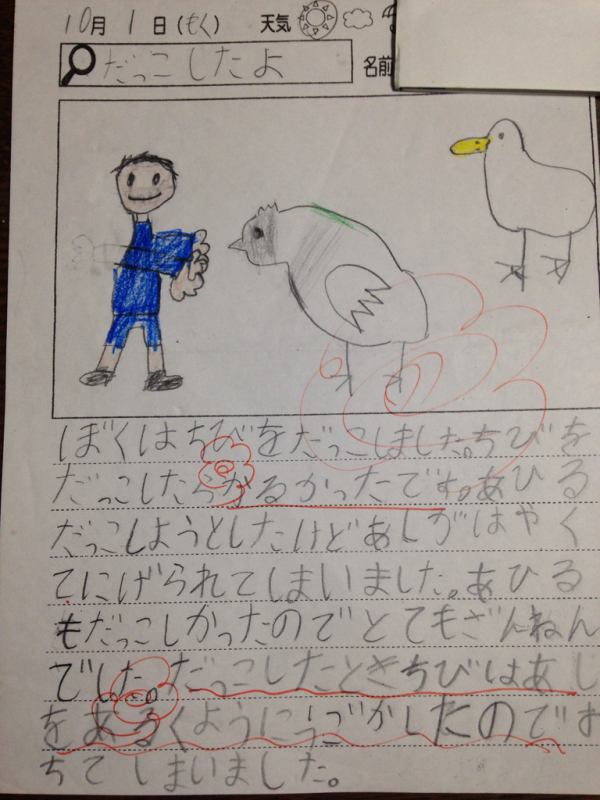 10月 1日(もく) 天気
だっこしたよ 名前
ぼくはちびをだっこしました。ちびを
だっこしたらかるかったです。あひる
だっこしようとしたけどあしがはやく
てにげられてしまいました。あひる
もだっこしかったのでとてもざんねん
でした。だっこしたときちびはあし
をあるくようにうごかしたのでお
ちてしまいました。